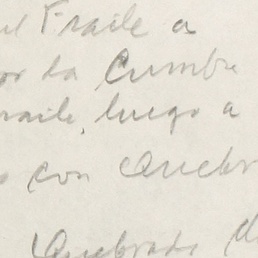 el Fraile a
or da Cumbre
raile, luego a
s con Quebr
Quebrada d